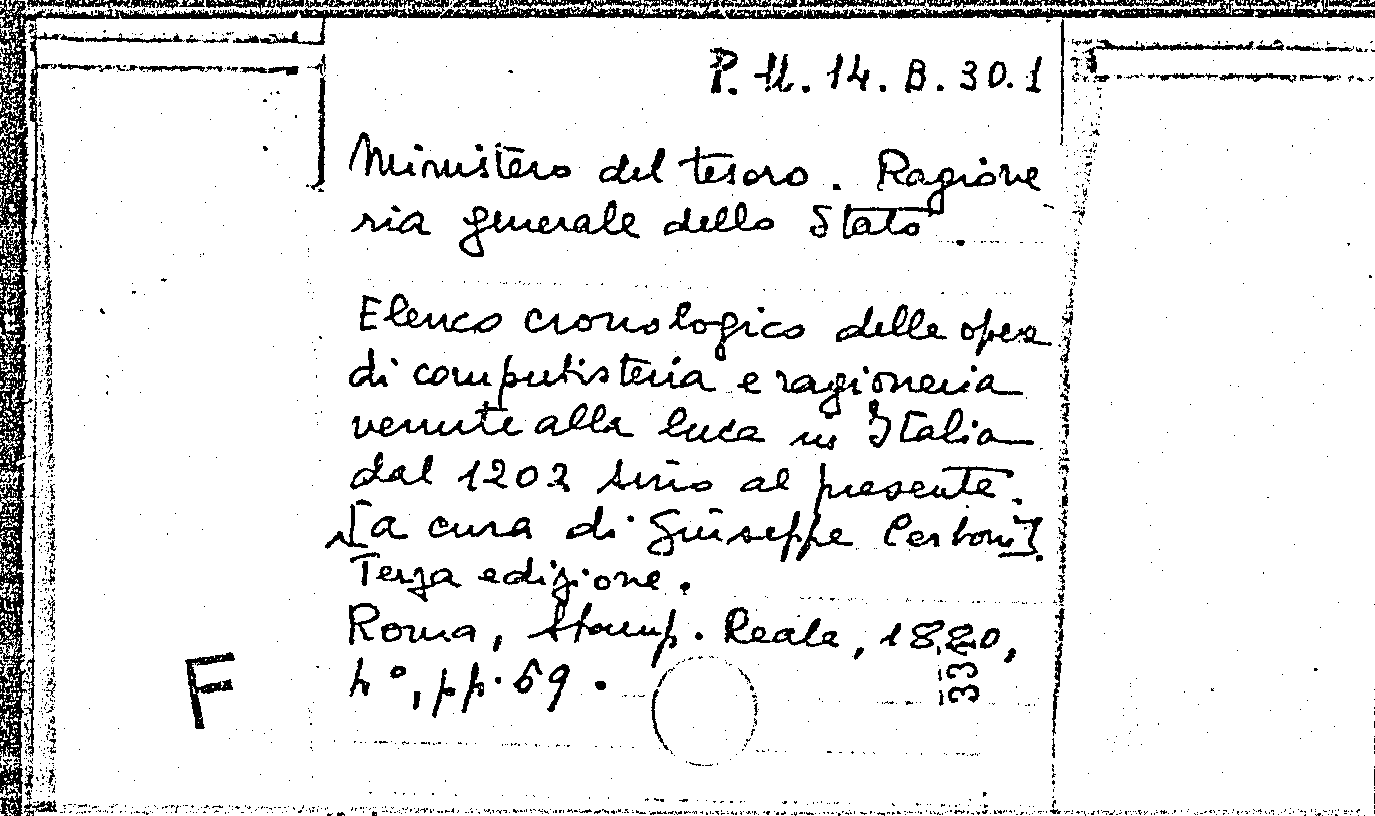 P. U. 14. B. 30. 1
Ministero del tesoro. Ragione
ria generale dello Stato.
Elenco cronologico delle opere
di computisteria e ragioneria
venute alla luce in Italia
dal 1202 sino al presente.
[a cura di Giuseppe Cerboni].
Terza edizione.
Roma, Stamp. Reale, 1880,
4°, pp. 69.
F